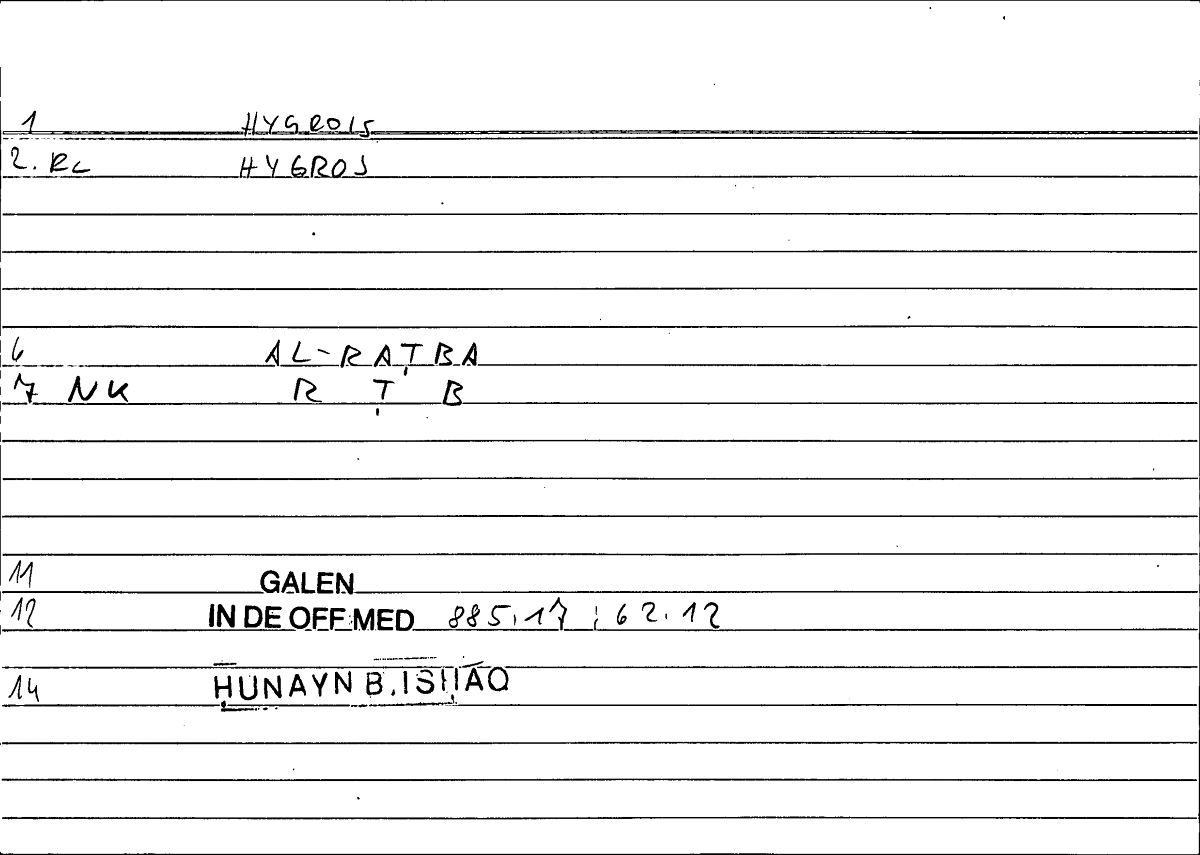 1 HYGROIS
2. RC HYGROS
6 AL-RAṬBA
7 NK R Ṭ B
11 GALEN
12 IN DE OFF MED 885.17 ; 62.12
14 ḤUNAYN B. ISḤĀQ